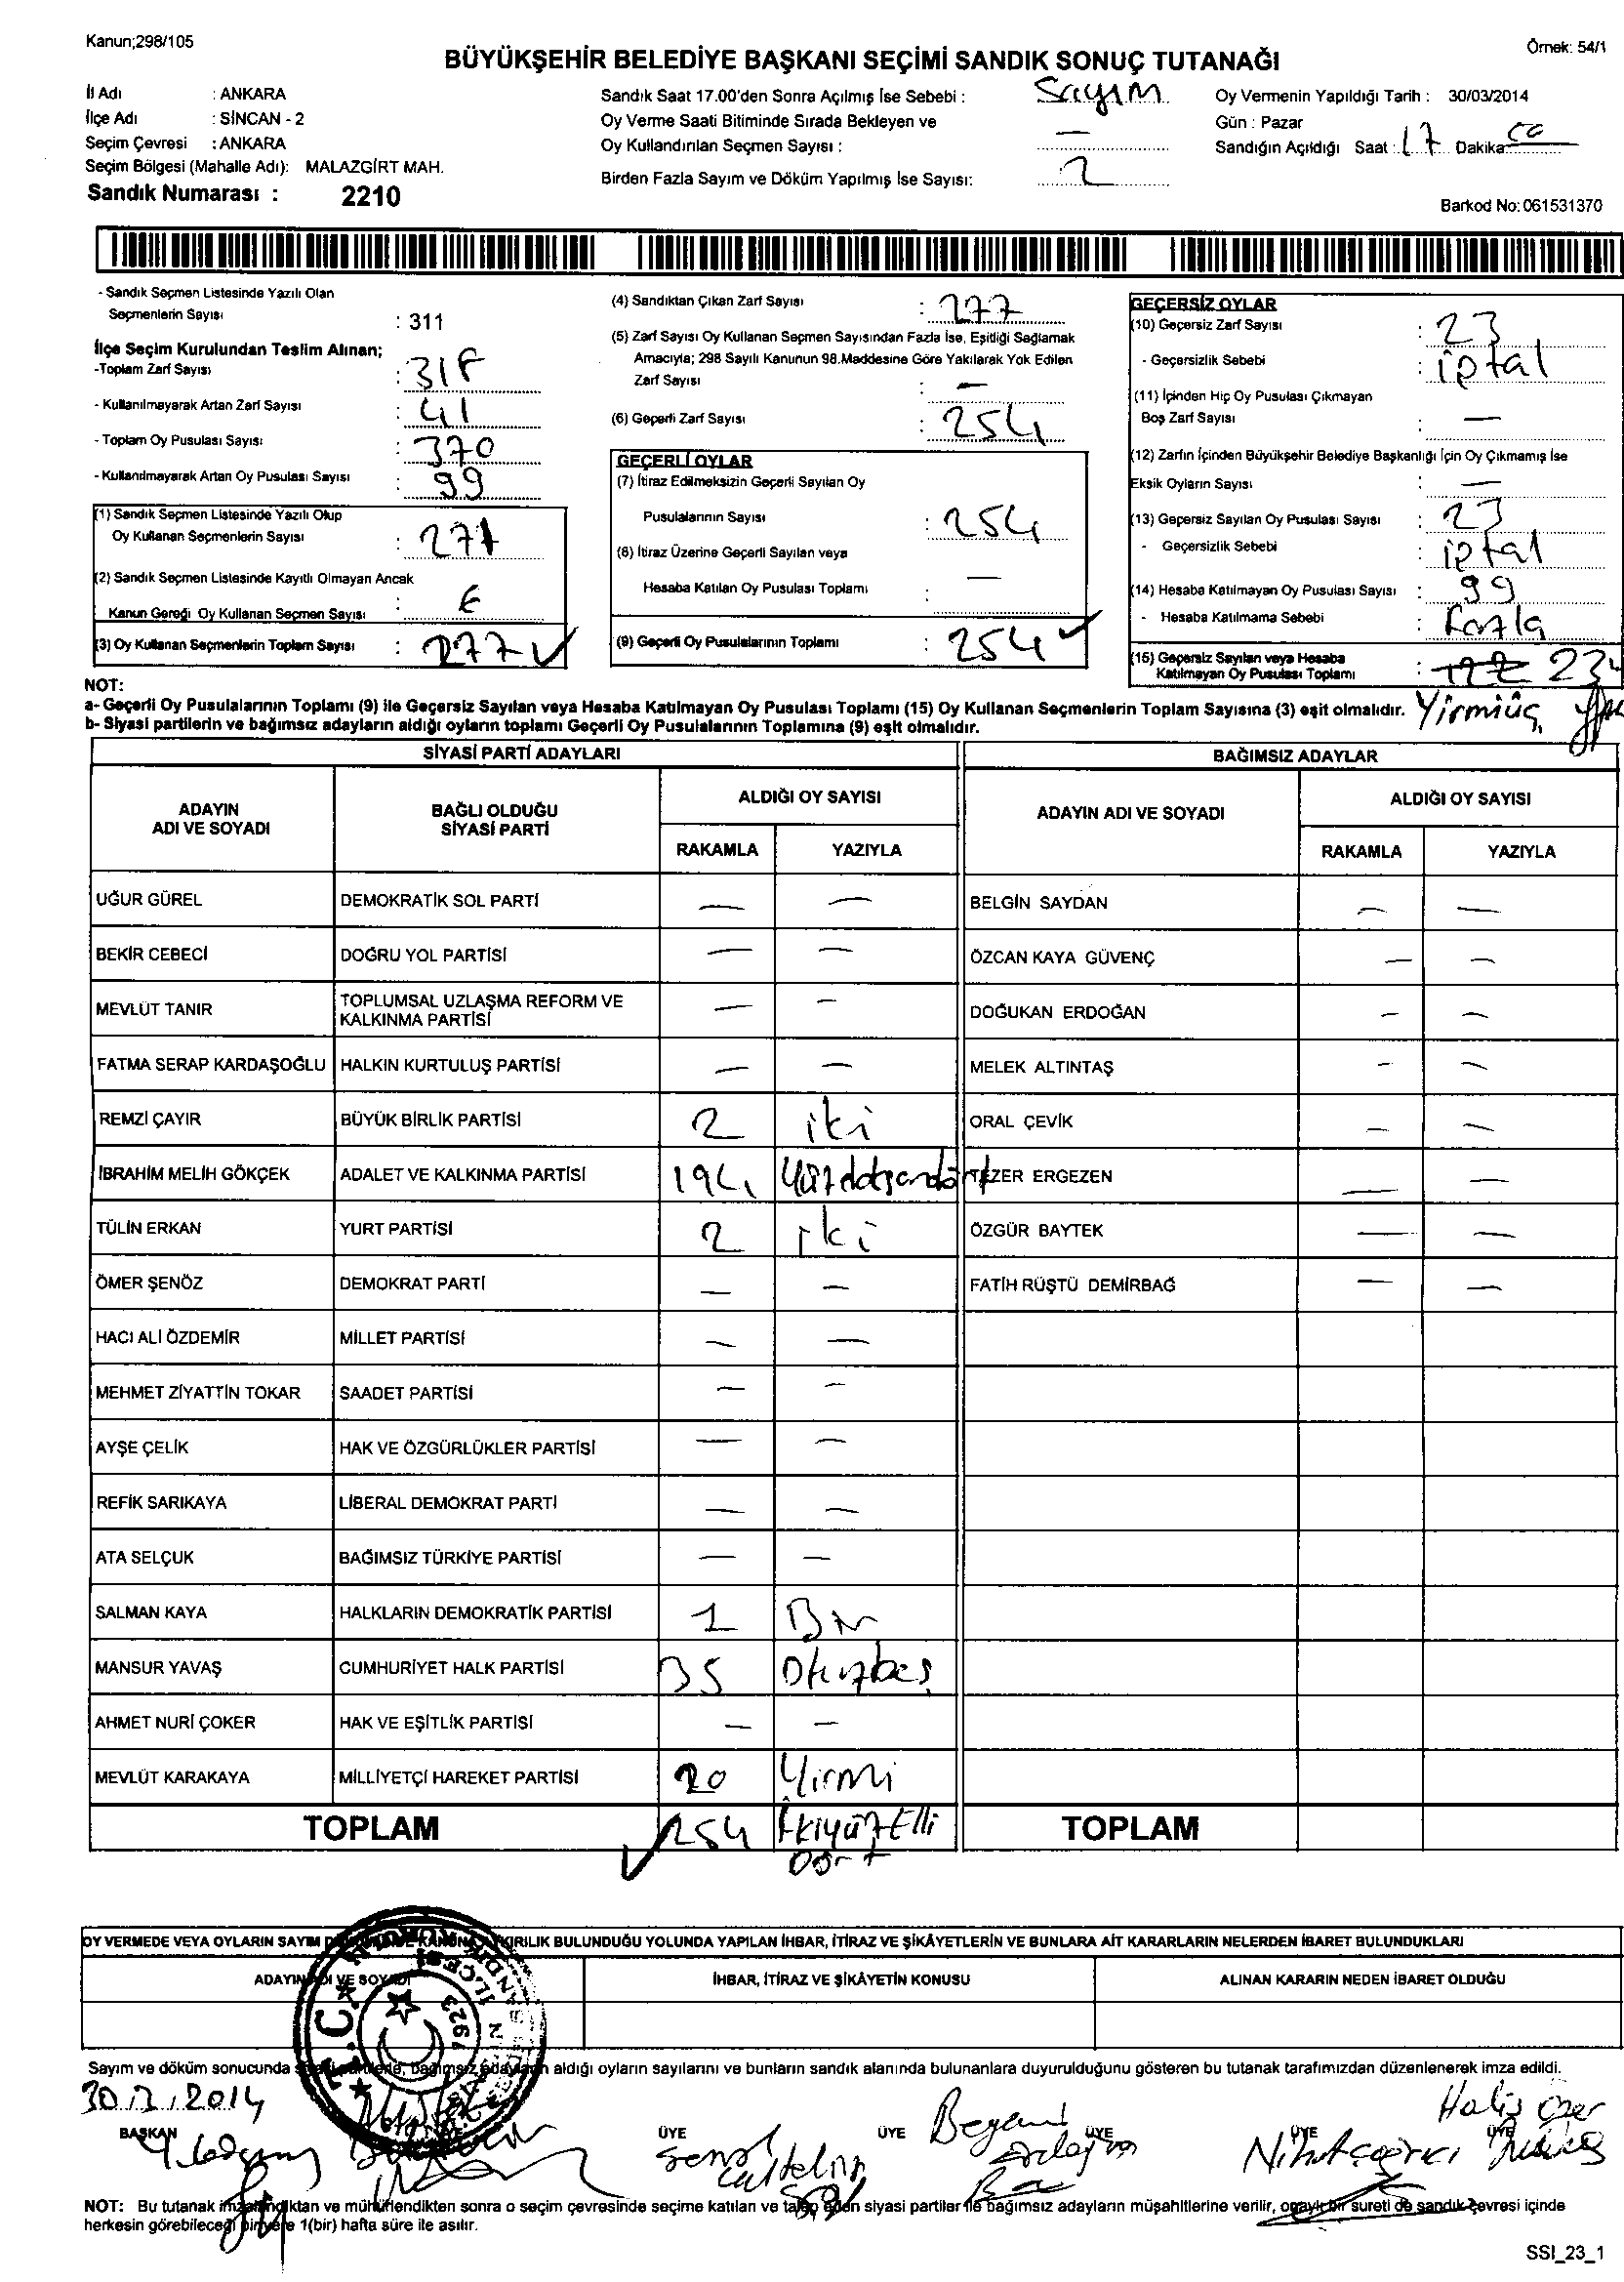 Kanun;298/105
Örnek: 54/1
BÜYÜKŞEHİR BELEDİYE BAŞKANI SEÇİMİ SANDIK SONUÇ TUTANAĞI
İl Adı : ANKARA
İlçe Adı : SİNCAN - 2
Seçim Çevresi : ANKARA
Seçim Bölgesi (Mahalle Adı): MALAZGİRT MAH.
Sandık Numarası : 2210
Sandık Saat 17.00'den Sonra Açılmış İse Sebebi : Sayım
Oy Verme Saati Bitiminde Sırada Bekleyen ve
Oy Kullandırılan Seçmen Sayısı : —
Birden Fazla Sayım ve Döküm Yapılmış İse Sayısı: 2
Oy Vermenin Yapıldığı Tarih : 30/03/2014
Gün : Pazar
Sandığın Açıldığı Saat : 17 Dakika
Barkod No: 061531370
- Sandık Seçmen Listesinde Yazılı Olan
Seçmenlerin Sayısı : 311
İlçe Seçim Kurulundan Teslim Alınan;
-Toplam Zarf Sayısı : 318
- Kullanılmayarak Artan Zarf Sayısı : 41
- Toplam Oy Pusulası Sayısı : 370
- Kullanılmayarak Artan Oy Pusulası Sayısı : 99
(1) Sandık Seçmen Listesinde Yazılı Olup
Oy Kullanan Seçmenlerin Sayısı : 271
(2) Sandık Seçmen Listesinde Kayıtlı Olmayan Ancak
Kanun Gereği Oy Kullanan Seçmen Sayısı : 6
(3) Oy Kullanan Seçmenlerin Toplam Sayısı : 277
(4) Sandıktan Çıkan Zarf Sayısı : 277
(5) Zarf Sayısı Oy Kullanan Seçmen Sayısından Fazla İse, Eşitliği Sağlamak
Amacıyla; 298 Sayılı Kanunun 98.Maddesine Göre Yakılarak Yok Edilen
Zarf Sayısı : —
(6) Geçerli Zarf Sayısı : 254
GEÇERLİ OYLAR
(7) İtiraz Edilmeksizin Geçerli Sayılan Oy
Pusulalarının Sayısı : 254
(8) İtiraz Üzerine Geçerli Sayılan veya
Hesaba Katılan Oy Pusulası Toplamı : —
(9) Geçerli Oy Pusulalarının Toplamı : 254
GEÇERSİZ OYLAR
(10) Geçersiz Zarf Sayısı : 23
- Geçersizlik Sebebi : iptal
(11) İçinden Hiç Oy Pusulası Çıkmayan
Boş Zarf Sayısı : —
(12) Zarfın İçinden Büyükşehir Belediye Başkanlığı İçin Oy Çıkmamış İse
Eksik Oyların Sayısı : —
(13) Geçersiz Sayılan Oy Pusulası Sayısı : 23
- Geçersizlik Sebebi : iptal
(14) Hesaba Katılmayan Oy Pusulası Sayısı : 99
- Hesaba Katılmama Sebebi : Fazla
(15) Geçersiz Sayılan veya Hesaba
Katılmayan Oy Pusulası Toplamı : 122 23
Yirmiüç
NOT:
a- Geçerli Oy Pusulalarının Toplamı (9) ile Geçersiz Sayılan veya Hesaba Katılmayan Oy Pusulası Toplamı (15) Oy Kullanan Seçmenlerin Toplam Sayısına (3) eşit olmalıdır.
b- Siyasi partilerin ve bağımsız adayların aldığı oyların toplamı Geçerli Oy Pusulalarının Toplamına (9) eşit olmalıdır.
SİYASİ PARTİ ADAYLARI
BAĞIMSIZ ADAYLAR
ADAYIN ADI VE SOYADI
BAĞLI OLDUĞU SİYASİ PARTİ
ALDIĞI OY SAYISI
RAKAMLA YAZIYLA
ADAYIN ADI VE SOYADI
ALDIĞI OY SAYISI
RAKAMLA YAZIYLA
UĞUR GÜREL DEMOKRATİK SOL PARTİ — — BELGİN SAYDAN — —
BEKİR CEBECİ DOĞRU YOL PARTİSİ — — ÖZCAN KAYA GÜVENÇ — —
MEVLÜT TANIR TOPLUMSAL UZLAŞMA REFORM VE KALKINMA PARTİSİ — — DOĞUKAN ERDOĞAN — —
FATMA SERAP KARDAŞOĞLU HALKIN KURTULUŞ PARTİSİ — — MELEK ALTINTAŞ — —
REMZİ ÇAYIR BÜYÜK BİRLİK PARTİSİ 2 iki ORAL ÇEVİK — —
İBRAHİM MELİH GÖKÇEK ADALET VE KALKINMA PARTİSİ 194 Yüzdoksandört TEZER ERGEZEN — —
TÜLİN ERKAN YURT PARTİSİ 2 iki ÖZGÜR BAYTEK — —
ÖMER ŞENÖZ DEMOKRAT PARTİ — — FATİH RÜŞTÜ DEMİRBAĞ — —
HACI ALİ ÖZDEMİR MİLLET PARTİSİ — —
MEHMET ZİYATTİN TOKAR SAADET PARTİSİ — —
AYŞE ÇELİK HAK VE ÖZGÜRLÜKLER PARTİSİ — —
REFİK SARIKAYA LİBERAL DEMOKRAT PARTİ — —
ATA SELÇUK BAĞIMSIZ TÜRKİYE PARTİSİ — —
SALMAN KAYA HALKLARIN DEMOKRATİK PARTİSİ 1 Bir
MANSUR YAVAŞ CUMHURİYET HALK PARTİSİ 35 Otuzbeş
AHMET NURİ ÇOKER HAK VE EŞİTLİK PARTİSİ — —
MEVLÜT KARAKAYA MİLLİYETÇİ HAREKET PARTİSİ 20 Yirmi
TOPLAM 254 İkiyüzElli Dört TOPLAM
OY VERMEDE VEYA OYLARIN SAYIM KANUNA AYKIRILIK BULUNDUĞU YOLUNDA YAPILAN İHBAR, İTİRAZ VE ŞİKÂYETLERİN VE BUNLARA AİT KARARLARIN NELERDEN İBARET BULUNDUKLARI
ADAYIN ADI VE SOYADI İHBAR, İTİRAZ VE ŞİKÂYETİN KONUSU ALINAN KARARIN NEDEN İBARET OLDUĞU
T.C.
1923
Sayım ve döküm sonucunda siyasi partilerin, bağımsız adayların aldığı oyların sayılarını ve bunların sandık alanında bulunanlara duyurulduğunu gösteren bu tutanak tarafımızdan düzenlenerek imza edildi.
30.3.2014
BAŞKAN ÜYE ÜYE ÜYE ÜYE ÜYE
Halis Özer
NOT: Bu tutanak imzalandıktan ve mühürlendikten sonra o seçim çevresinde seçime katılan ve talep eden siyasi partiler ile bağımsız adayların müşahitlerine verilir, onaylı bir sureti de sandık çevresi içinde
herkesin görebileceği bir yere 1(bir) hafta süre ile asılır.
SSI_23_1